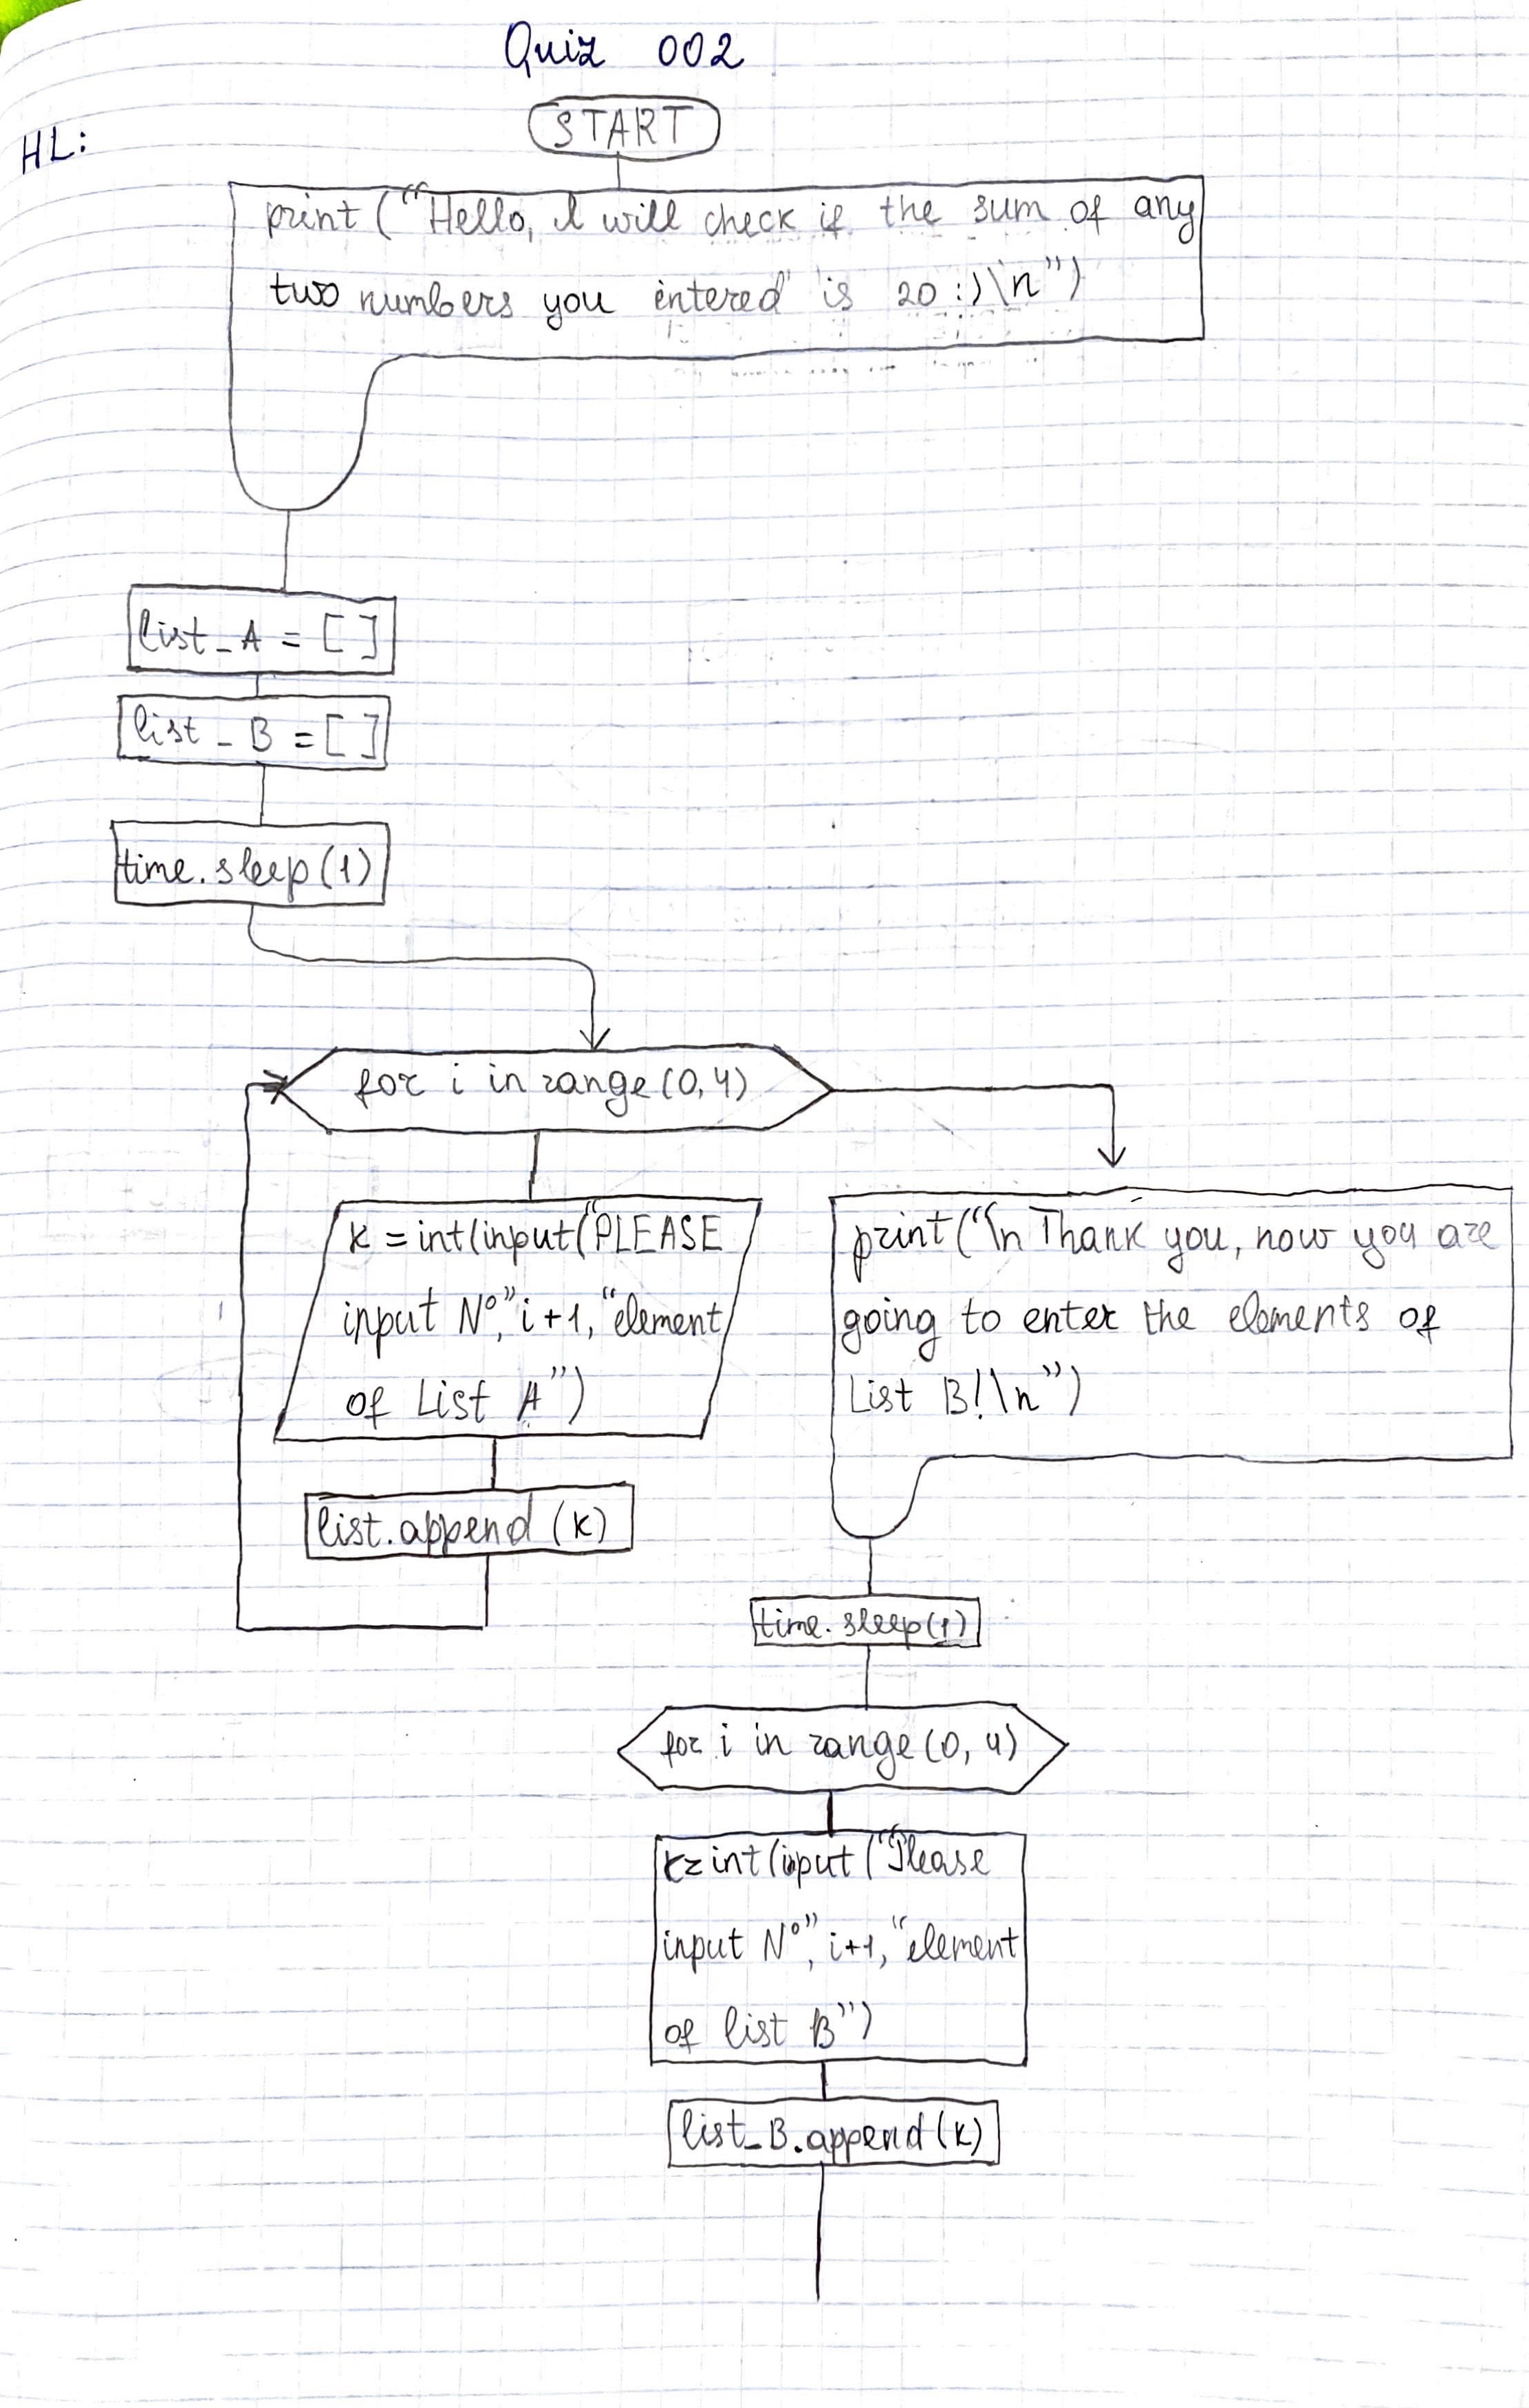 Quiz 002
HL:
START
print ("Hello, I will check if the sum of any
two numbers you entered is 20 :) \n")
list_A = [ ]
list_B = [ ]
time.sleep(1)
for i in range(0,4)
k = int(input("PLEASE
input N°", i+1, "element
of List A")
list.append (k)
print("\n Thank you, now you are
going to enter the elements of
List B! \n")
time.sleep(1)
for i in range(0, 4)
k = int(input("Please
input N°", i+1, "element
of list B")
list_B.append(k)